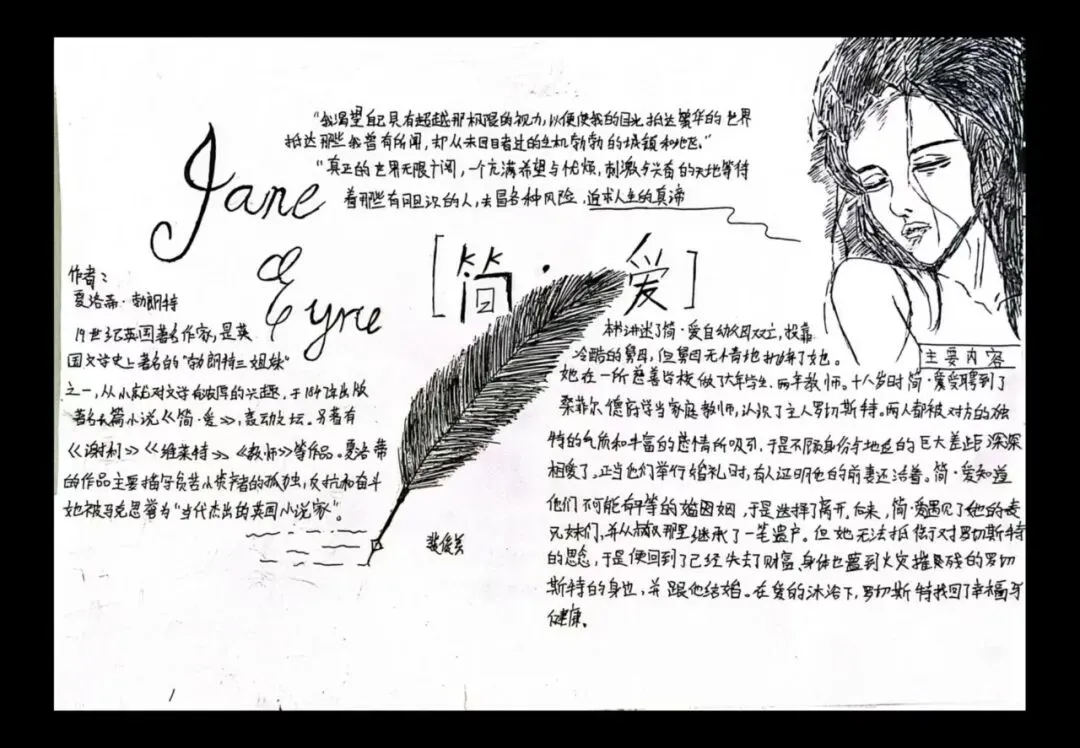 "我渴望自己具有超越那极限的视力,以便使我的目光抵达繁华的世界
抵达那些我曾有所闻,却从未目睹过的生机勃勃的城镇和地区."
"真正的世界无限广阔,一个充满希望与忧烦,刺激与兴奋的天地等待
着那些有胆识的人,去冒各种风险,追求人生的真谛
Jane
Eyre
[简·爱]
作者:
夏洛蒂·勃朗特
19世纪英国著名作家,是英
国文学史上著名的"勃朗特三姐妹"
之一,从小就对文学有浓厚的兴趣,于1847年出版
著名长篇小说《简·爱》,轰动文坛。另著有
《谢利》《维莱特》《教师》等作品。夏洛蒂
的作品主要描写贫苦小资产者的孤独,反抗和奋斗
她被马克思誉为"当代杰出的英国小说家"。
裴俊美
主要内容
本书讲述了简·爱自幼父母双亡,投靠
冷酷的舅母,但舅母无情地抛弃了她。
她在一所慈善学校做了六年学生,两年教师。十八岁时简·爱受聘到了
桑菲尔德府学当家庭教师,认识了主人罗切斯特。两人都被对方的独
特的气质和丰富的感情所吸引,于是不顾身份与地位的巨大差距深深
相爱了。正当他们举行婚礼时,有人证明他的前妻还活着。简·爱知道
他们不可能有平等的婚姻,于是选择了离开。后来,简·爱遇见了她的表
兄妹们,并从叔叔那里继承了一笔遗产。但她无法抵御对罗切斯特
的思念,于是便回到了已经失去了财富、身体也遭到火灾摧残的罗切
斯特的身边,并跟他结婚。在爱的沐浴下,罗切斯特找回了幸福与
健康。